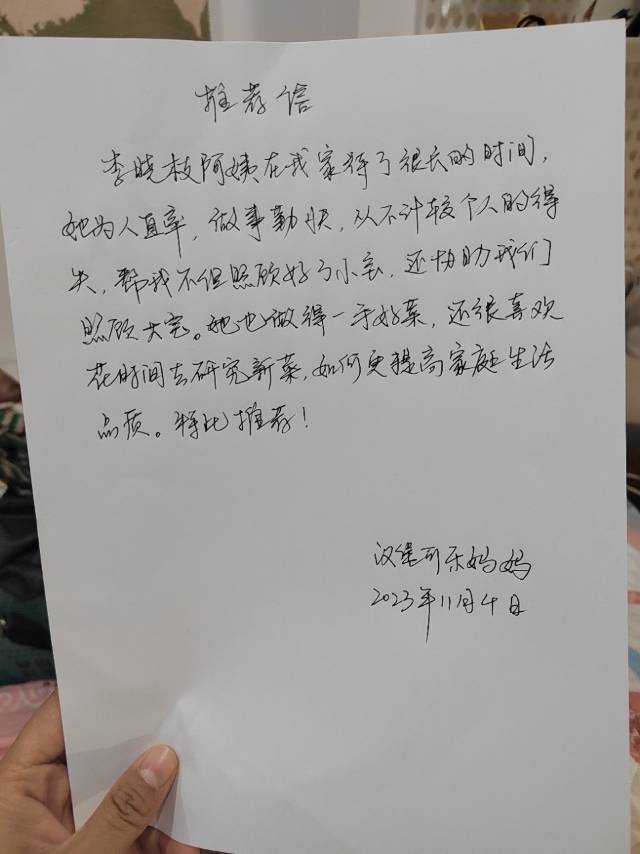 推荐信
李晓枝阿姨在我家待了很长的时间,
她为人直率,做事勤快,从不计较个人的得
失,帮我不但照顾好了小宝,还协助我们
照顾大宝。她也做得一手好菜,还很喜欢
花时间去研究新菜,如何更提高家庭生活
品质。特此推荐!
汉堡可乐妈妈
2023年11月4日